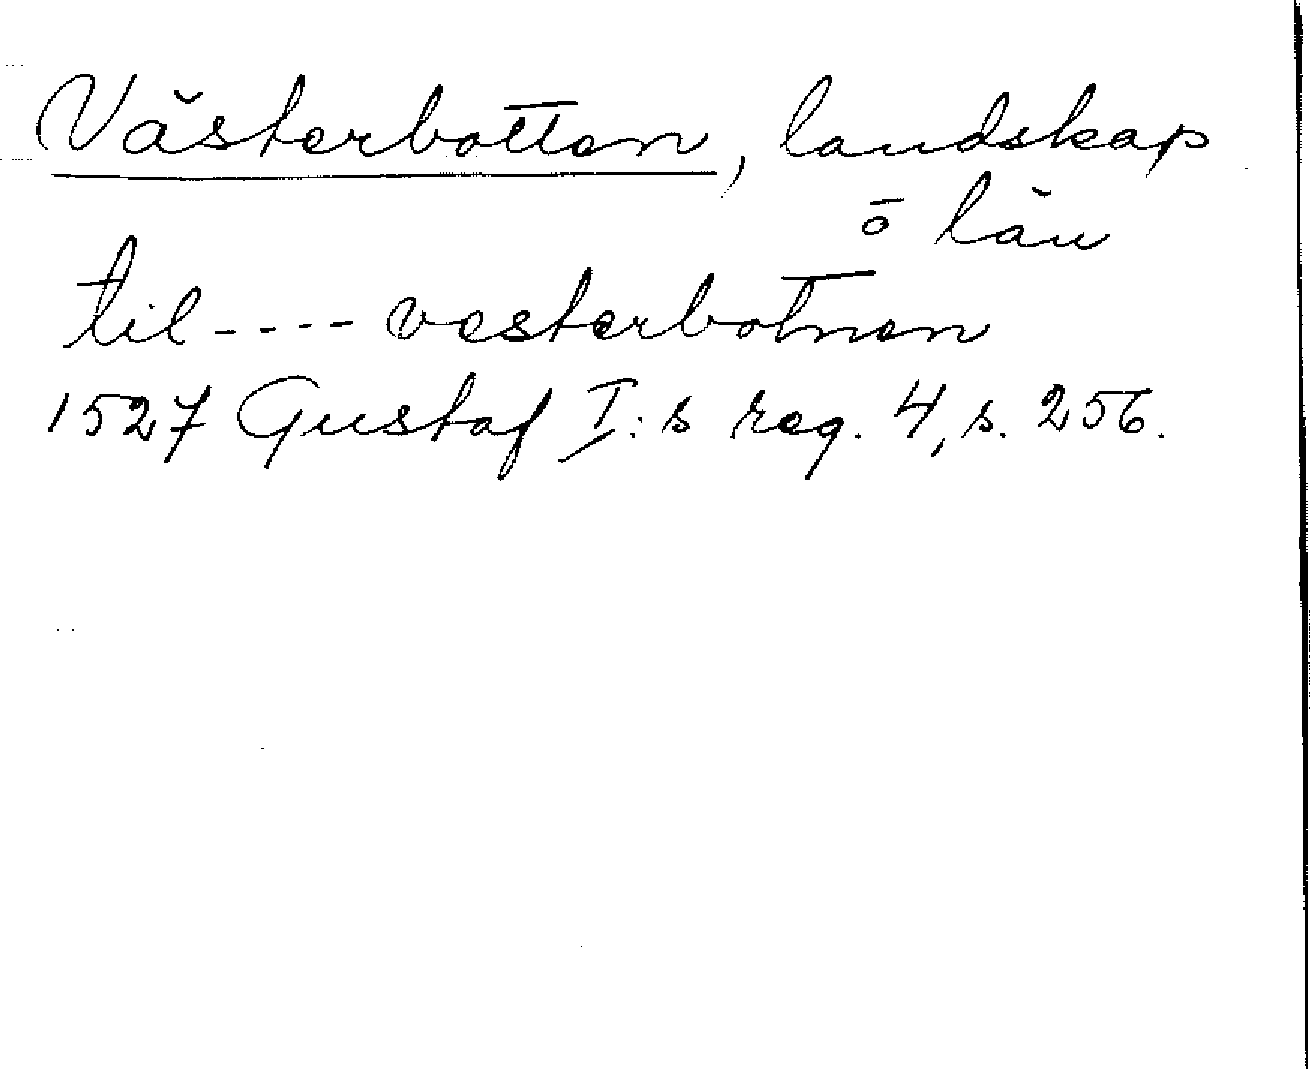 Västerbotten, landskap
ö län
til ---- vesterbotnen
1527 Gustaf I:s reg. 4, s. 256.